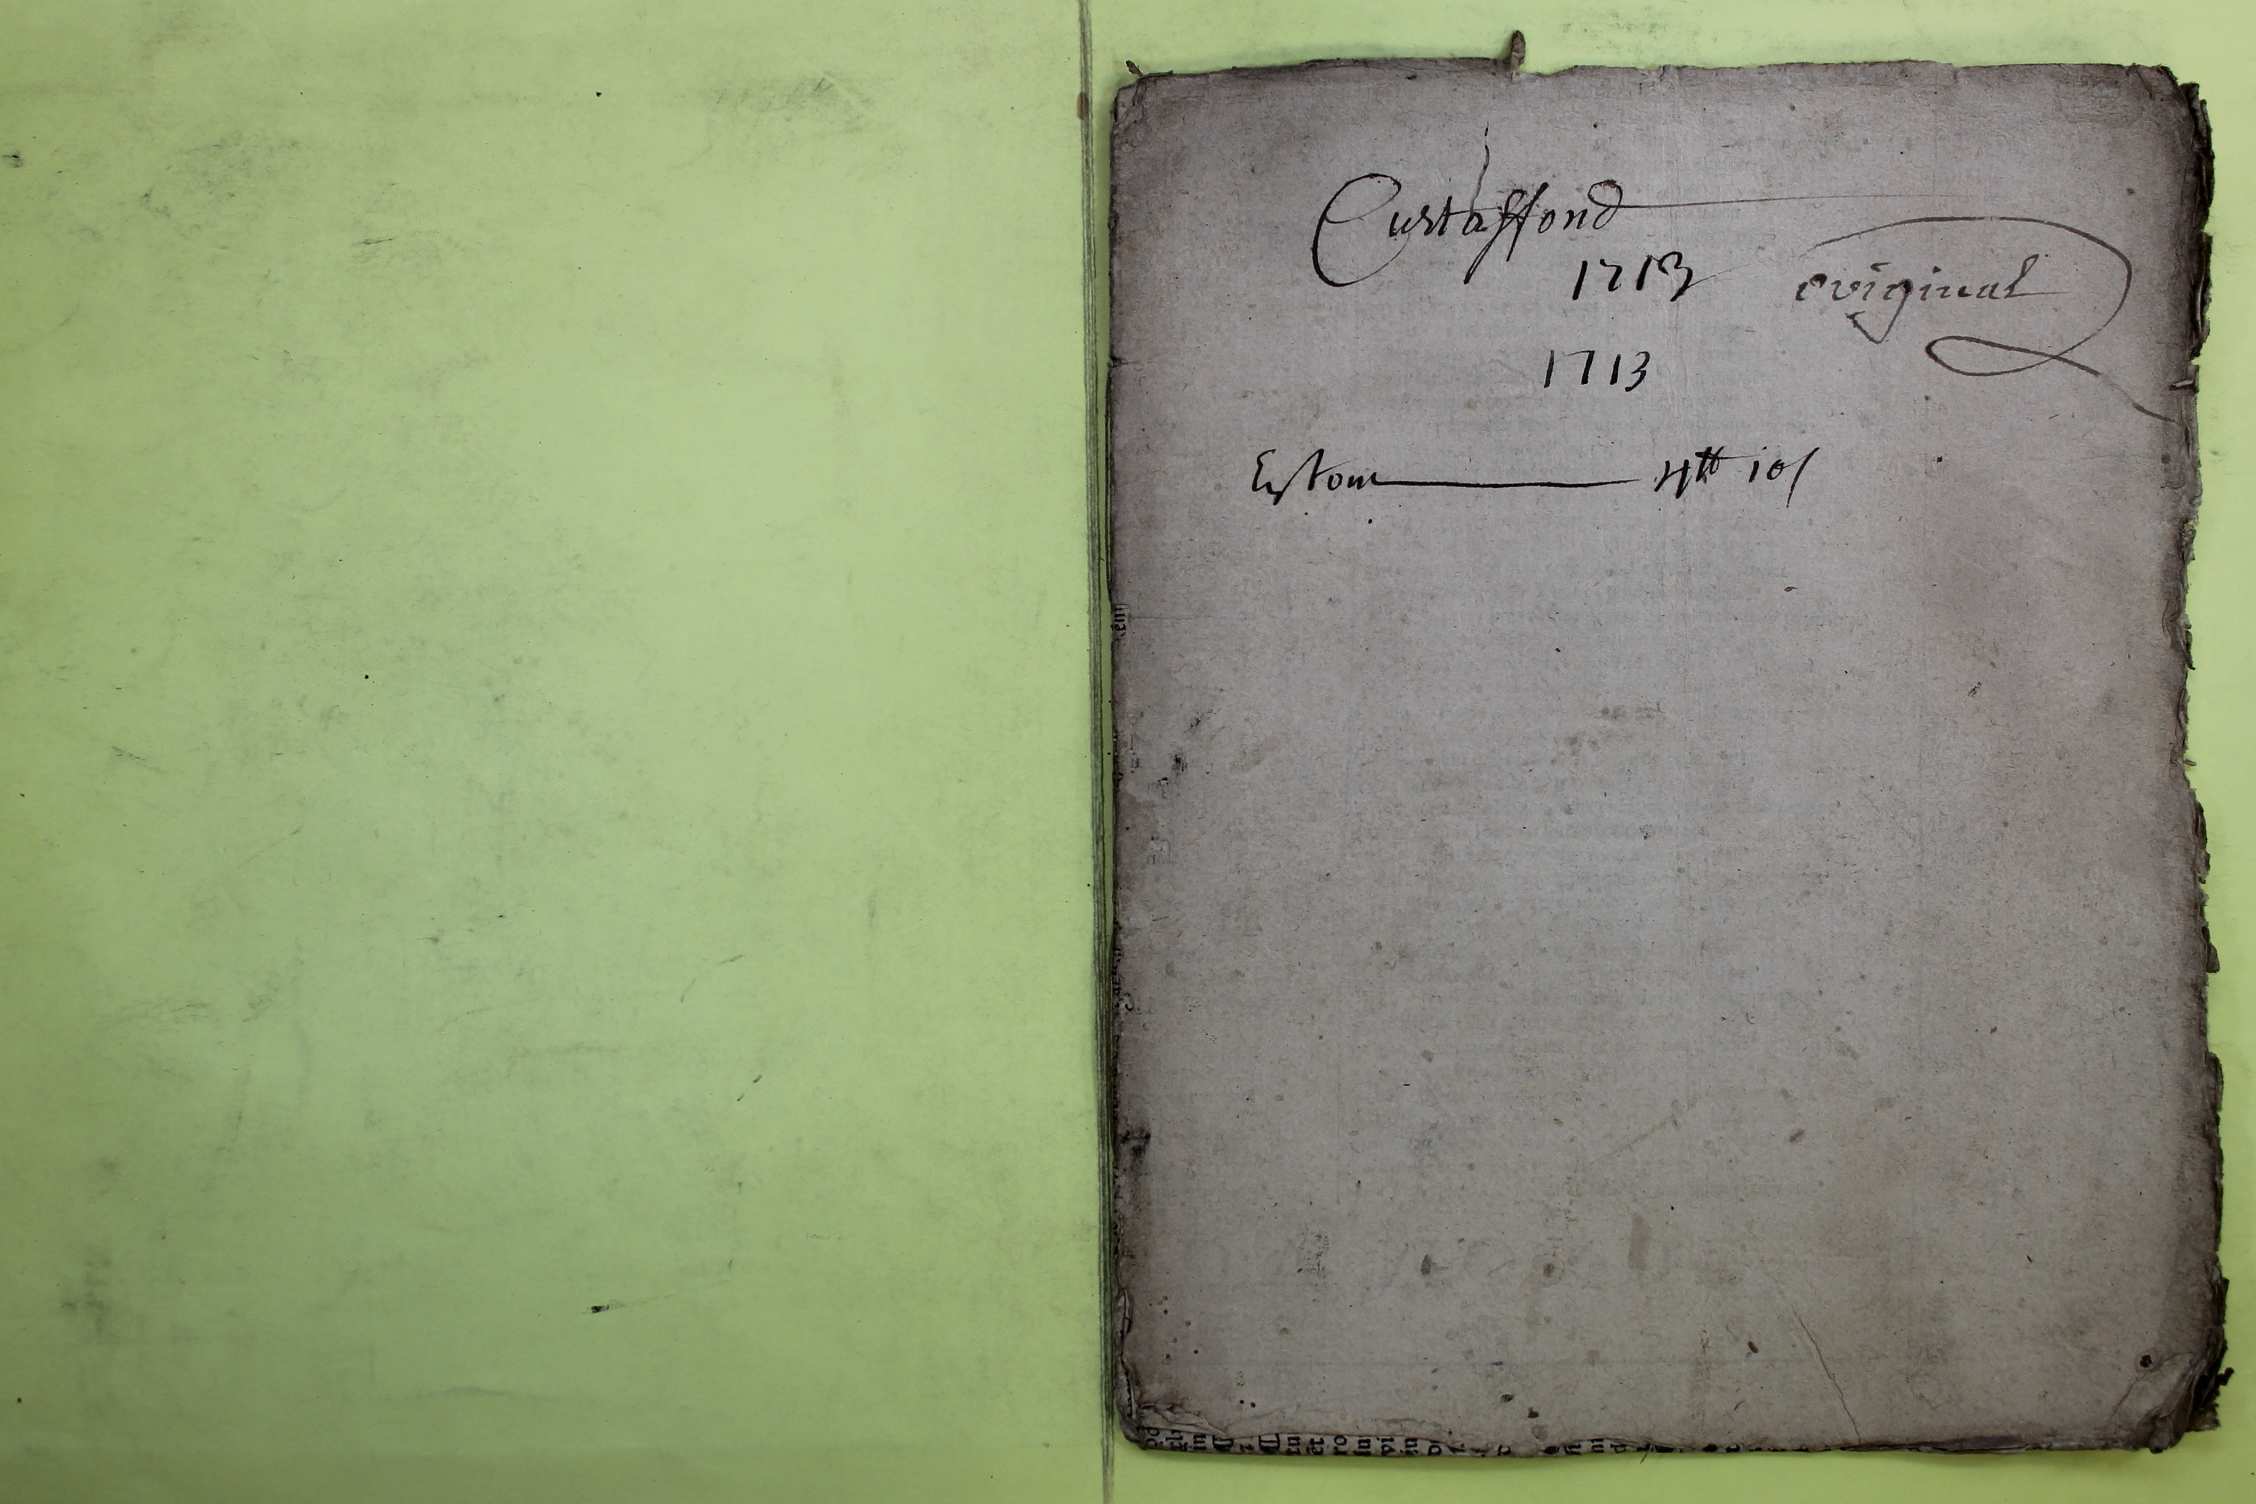 Curtaffond
1713 original
1713
4tt 10s